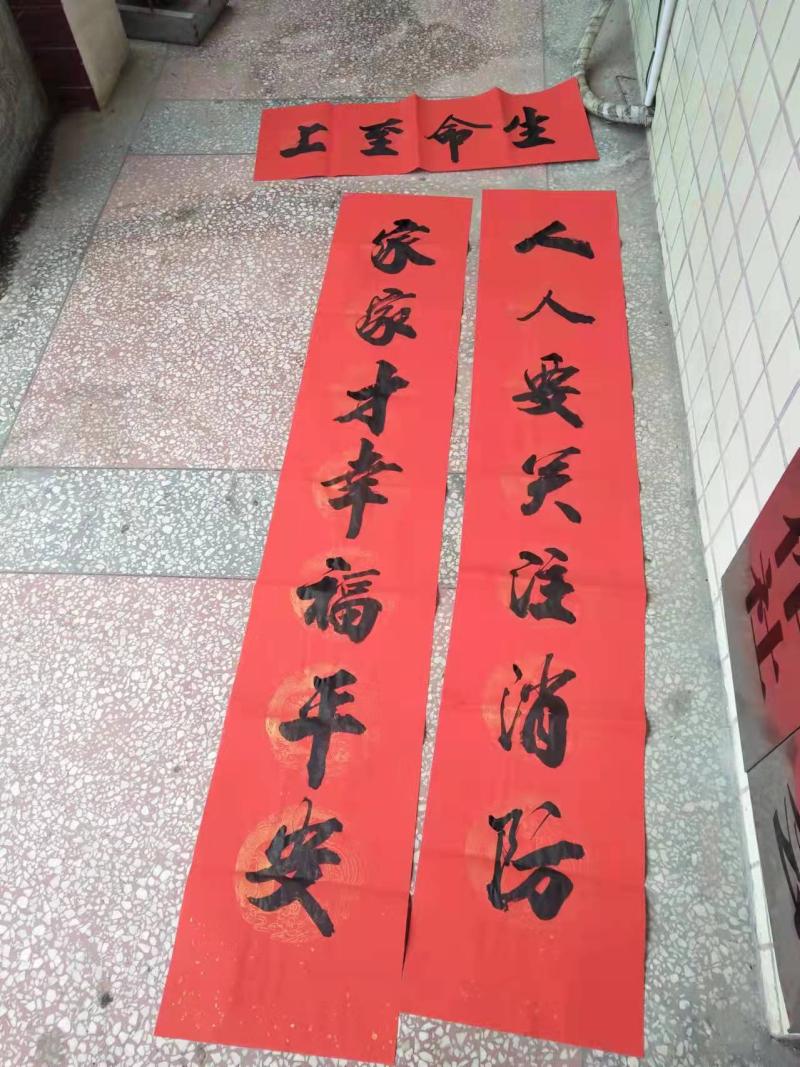 生命至上
人人要关注消防
家家才幸福平安
社